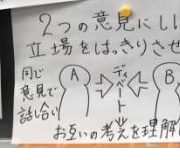 2つの意見にし
立場をはっきりさせ
同じ
意見で
話し合い
A
ディベート
B
お互いの考えを理解